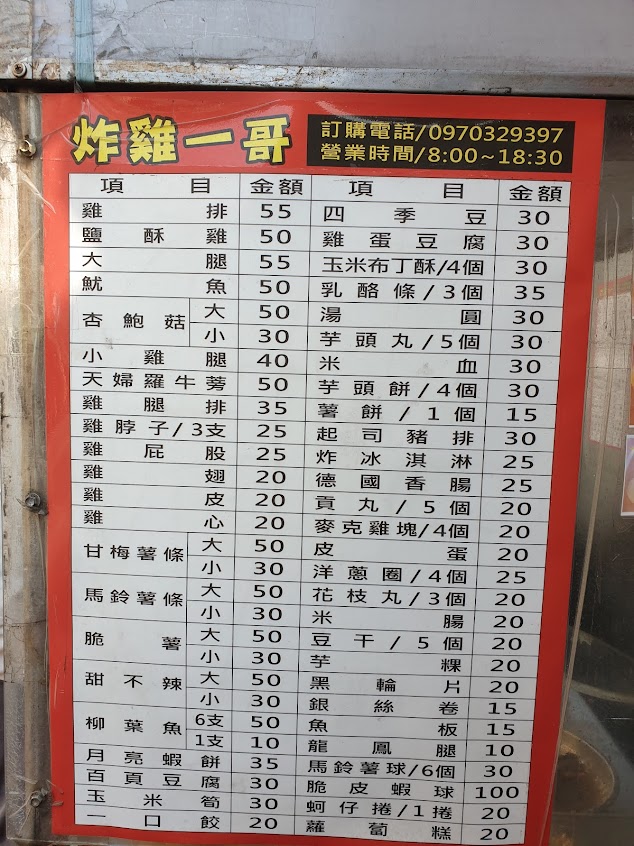 炸雞一哥
訂購電話/0970329397
營業時間/8:00~18:30
項目 金額 項目 金額
雞排 55 四季豆 30
鹽酥雞 50 雞蛋豆腐 30
大腿 55 玉米布丁酥/4個 30
魷魚 50 乳酪條/3個 35
杏鮑菇 大 50 湯圓 30
小 30 芋頭丸/5個 30
小雞腿 40 米血 30
天婦羅牛蒡 50 芋頭餅/4個 30
雞腿排 35 薯餅/1個 15
雞脖子/3支 25 起司豬排 30
雞屁股 25 炸冰淇淋 25
雞翅 20 德國香腸 25
雞皮 20 貢丸/5個 20
雞心 20 麥克雞塊/4個 20
甘梅薯條 大 50 皮蛋 20
小 30 洋蔥圈/4個 25
馬鈴薯條 大 50 花枝丸/3個 20
小 30 米腸 20
脆薯 大 50 豆干/5個 20
小 30 芋粿 20
甜不辣 大 50 黑輪片 20
小 30 銀絲卷 15
柳葉魚 6支 50 魚板 15
1支 10 龍鳳腿 10
月亮蝦餅 35 馬鈴薯球/6個 30
百頁豆腐 30 脆皮蝦球 100
玉米筍 30 蚵仔捲/1捲 20
一口餃 20 蘿蔔糕 20